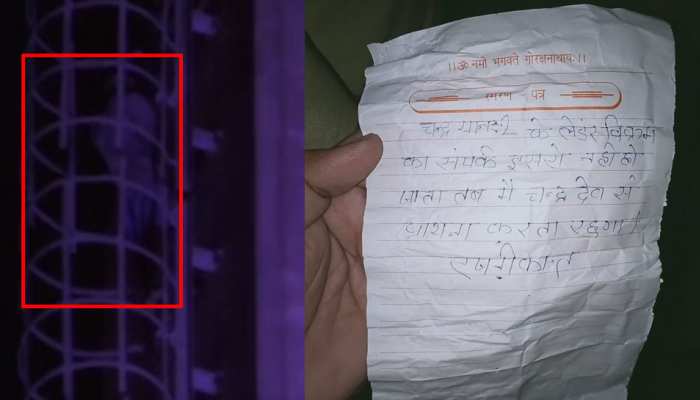 ।।ॐ नमो भगवते गोरक्षनाथाय।।
स्मरण - पत्र
चन्द्र यान-2 के लेडंर विक्रम
का संपर्क इसरो नही हो
जाता तब मै चन्द्र देव से
प्राथना करता रहूगा।
रजनीकान्त